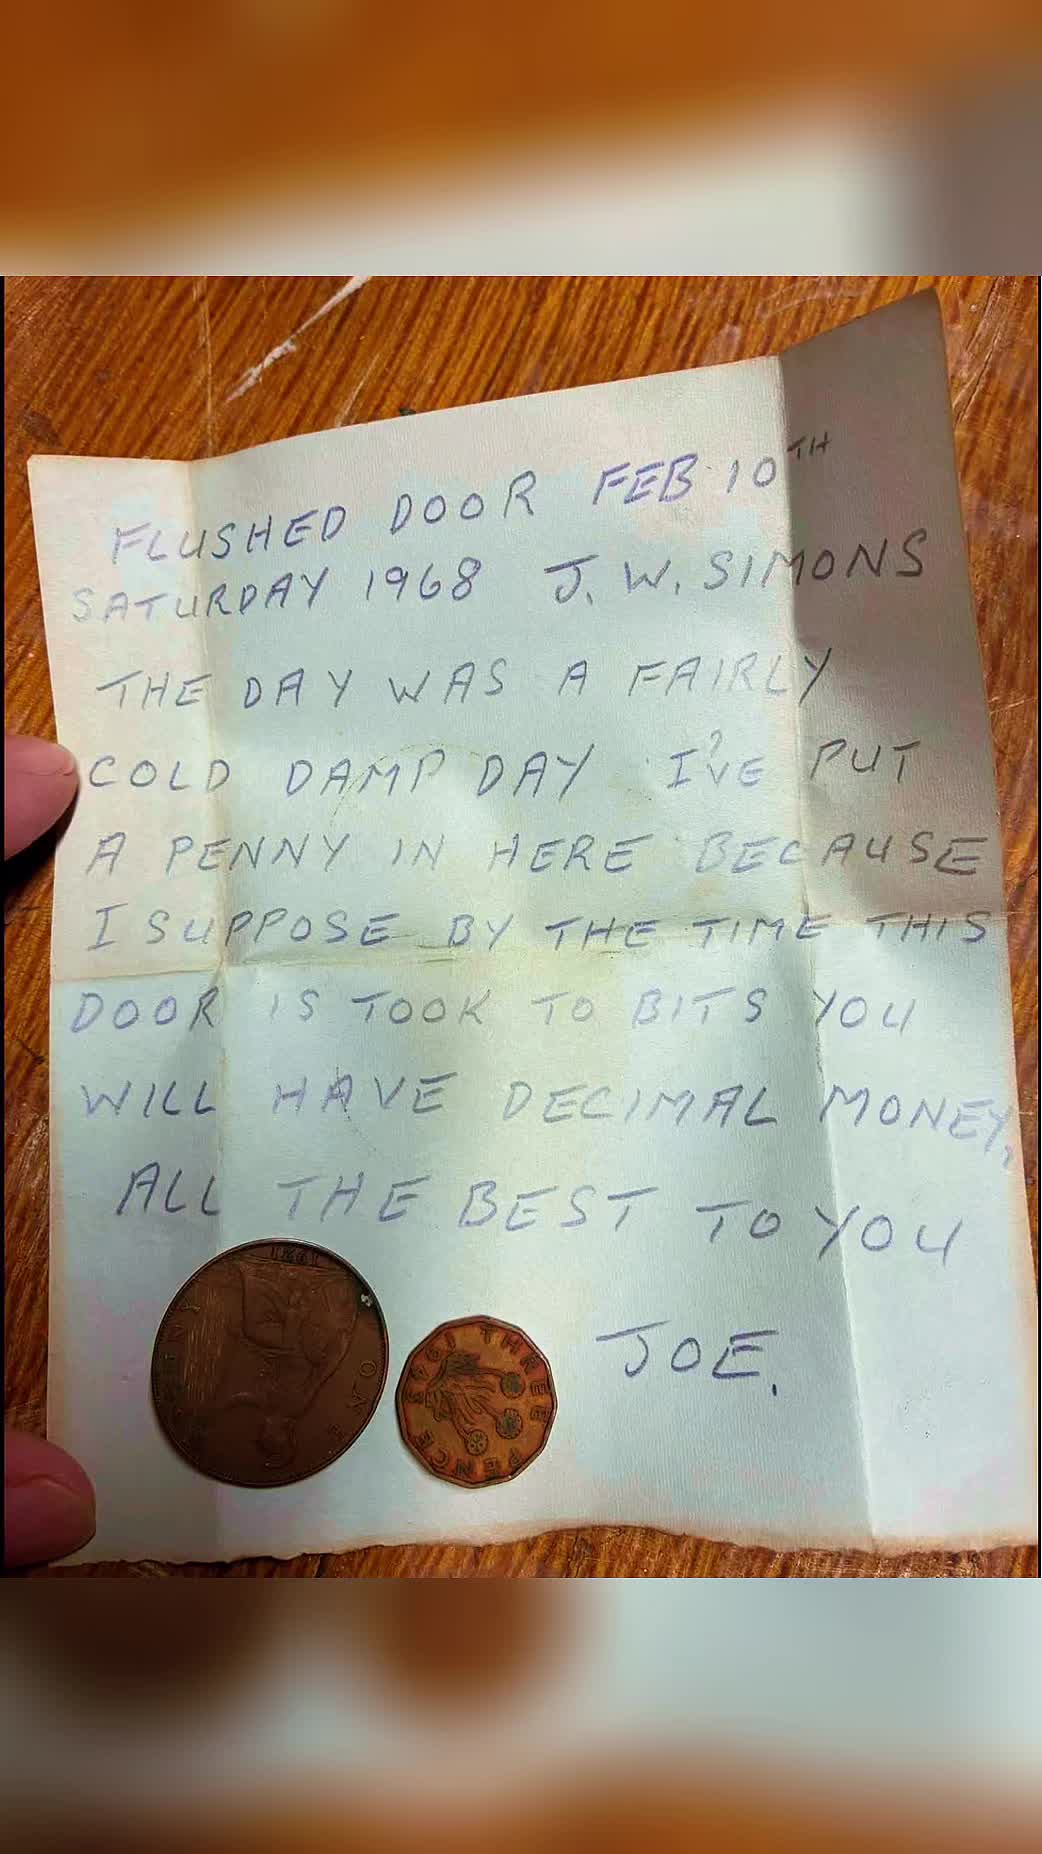 FLUSHED DOOR FEB 10TH
SATURDAY 1968 J. W. SIMONS
THE DAY WAS A FAIRLY
COLD DAMP DAY I'VE PUT
A PENNY IN HERE BECAUSE
I SUPPOSE BY THE TIME THIS
DOOR IS TOOK TO BITS YOU
WILL HAVE DECIMAL MONEY.
ALL THE BEST TO YOU
JOE.
ONE PENNY
THREE PENCE